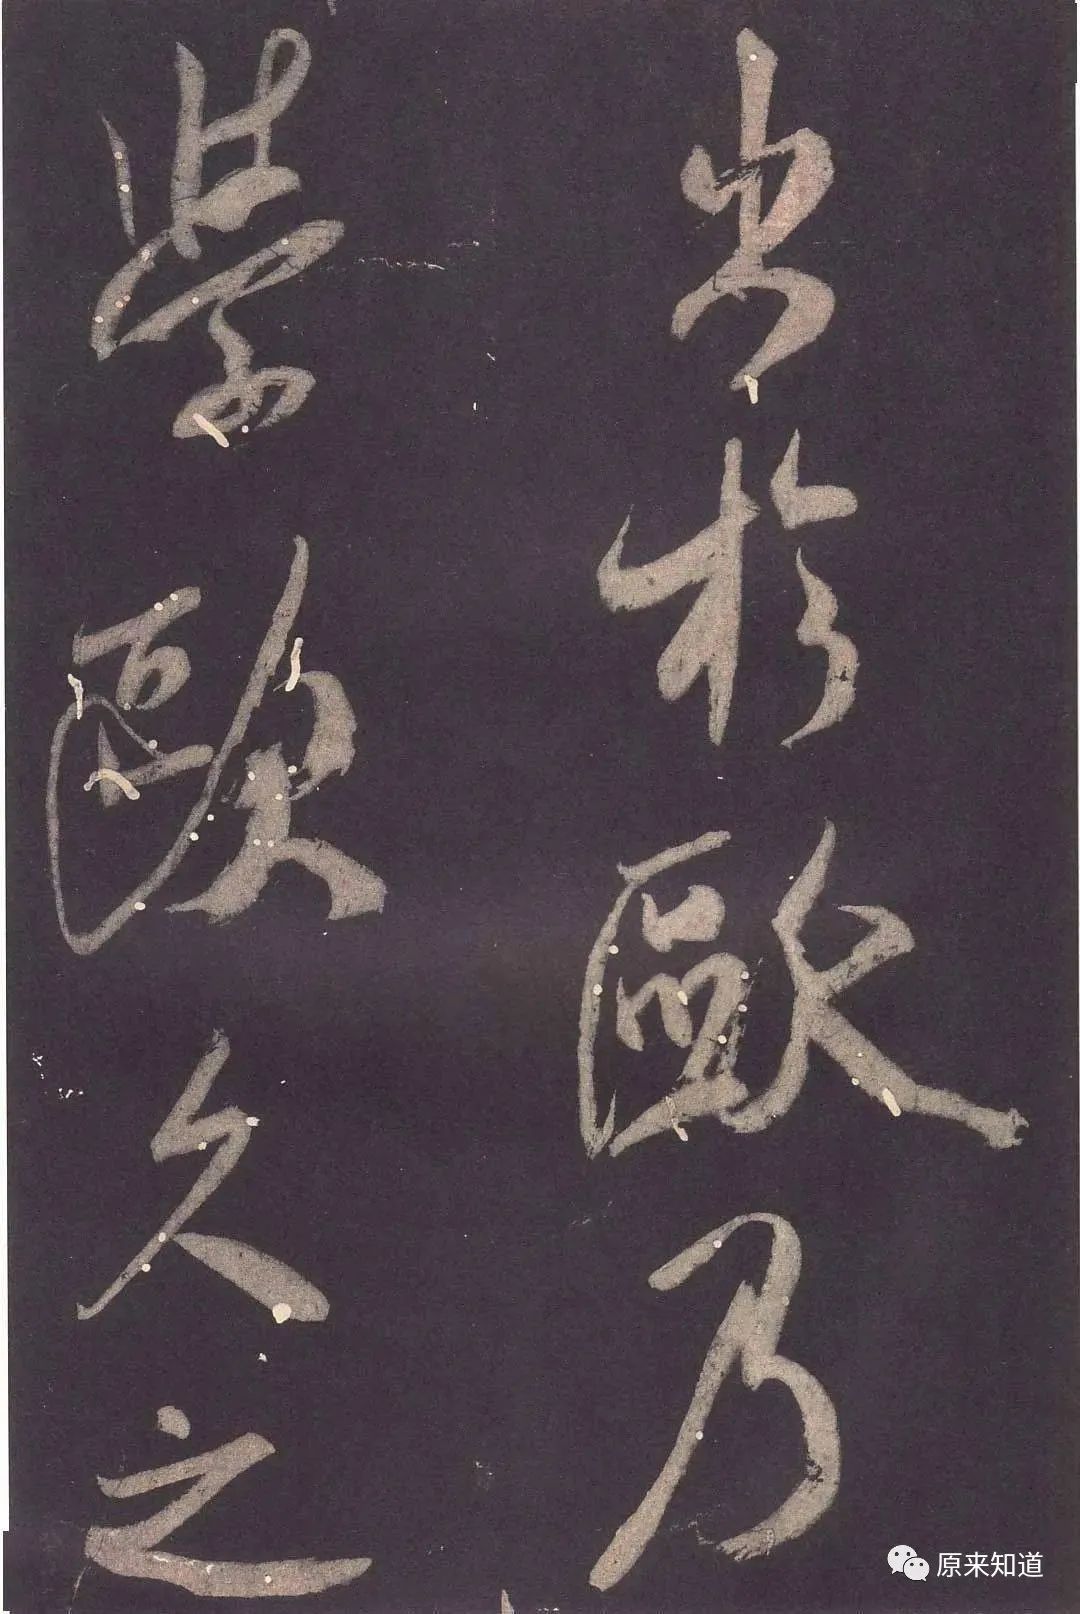 出於歐乃
學歐久之
原来知道